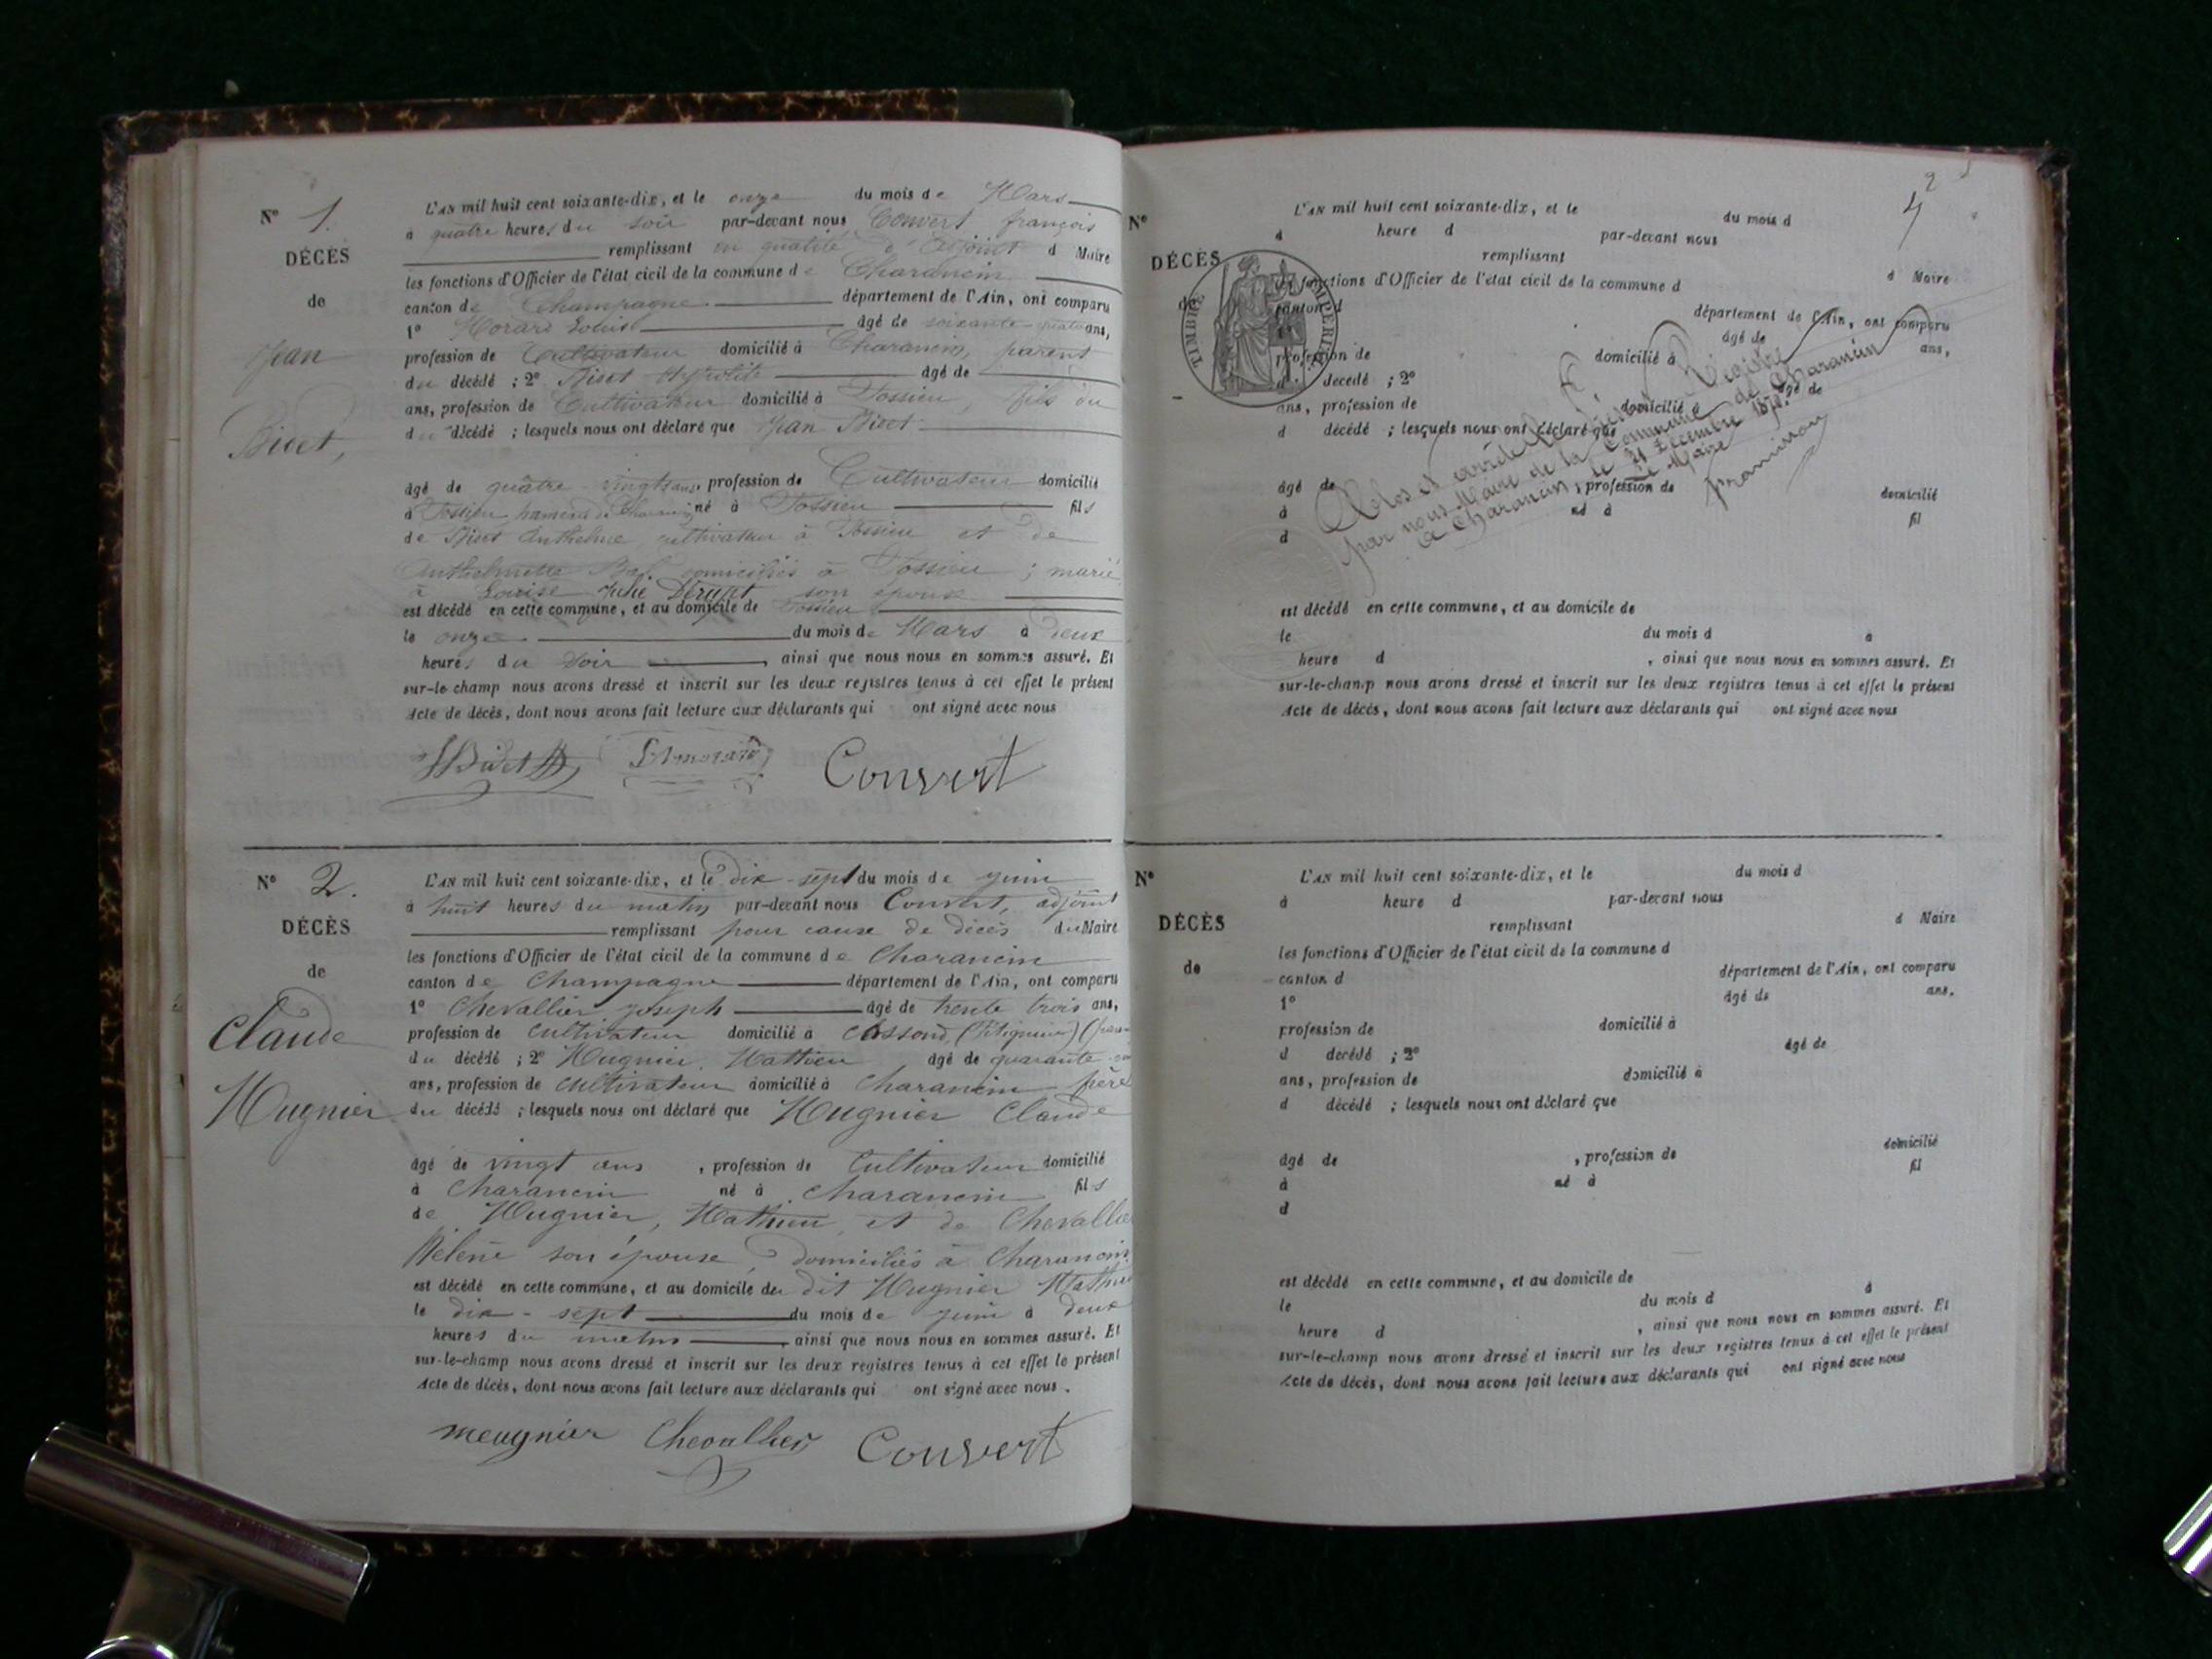 N° 1.
DÉCÈS
de
Jean
Bidet,
L'AN mil huit cent soixante-dix, et le onze du mois de Mars
à quatre heures du soir par-devant nous Convert françois
remplissant en qualité d'adjoint d Maire
les fonctions d'Officier de l'état civil de la commune de Charancin
canton de Champagne département de l'Ain, ont comparu
1° Louis âgé de soixante ans,
profession de Cultivateur domicilié à Charancin, parent
du décédé ; 2° Bidet âgé de
ans, profession de Cultivateur domicilié à Fossieu, fils du
du décédé ; lesquels nous ont déclaré que Jean Bidet
âgé de quatre-vingts ans, profession de Cultivateur domicilié
à Fossieu, hameau de né à Fossieu fils
de Bidet Anthelme, cultivateur à Fossieu et de
Anthelmette domiciliés à Fossieu ; marié
à Louise Julie son épouse
est décédé en cette commune, et au domicile de Fossieu
le onze du mois de Mars à deux
heures du soir , ainsi que nous nous en sommes assuré. Et
sur-le champ nous avons dressé et inscrit sur les deux registres tenus à cet effet le présent
Acte de décès, dont nous avons fait lecture aux déclarants qui ont signé avec nous
Bidet Convert
N° 2.
DÉCÈS
de
Claude
Mugnier
L'AN mil huit cent soixante-dix, et le dix-sept du mois de juin
à huit heures du matin par-devant nous Convert, adjoint
remplissant pour cause de décès du Maire
les fonctions d'Officier de l'état civil de la commune de Charancin
canton de Champagne département de l'Ain, ont comparu
1° Chevallier Joseph âgé de trente trois ans,
profession de cultivateur domicilié à
du décédé ; 2° Mugnier, Mathieu âgé de quarante
ans, profession de cultivateur domicilié à Charancin père
du décédé ; lesquels nous ont déclaré que Mugnier Claude
âgé de vingt ans , profession de Cultivateur domicilié
à Charancin né à Charancin fils
de Mugnier, Mathieu, et de Chevallier
Hélène son épouse, domiciliés à Charancin
est décédé en cette commune, et au domicile du dit Mugnier Mathieu
le dix-sept du mois de juin à deux
heures du matin ainsi que nous nous en sommes assuré. Et
sur-le-champ nous avons dressé et inscrit sur les deux registres tenus à cet effet le présent
Acte de décès, dont nous avons fait lecture aux déclarants qui ont signé avec nous.
meugnier Chevallier Convert
2
4
N°
DÉCÈS
de
TIMBRE IMPÉRIAL
L'AN mil huit cent soixante-dix, et le du mois d
à heure d par-devant nous
remplissant d Maire
les fonctions d'Officier de l'état civil de la commune d
canton d département de l'Ain, ont comparu
âgé de ans,
profession de domicilié à
d décédé ; 2° âgé de
ans, profession de domicilié à
d décédé ; lesquels nous ont déclaré que
Clos et arrêté le Registre
par nous Maire de la Commune de Charancin
à Charancin, le 31 Décembre 1870.
Le Maire
âgé de , profession de domicilié
à né à fil
d
est décédé en cette commune, et au domicile de
le du mois d à
heure d , ainsi que nous nous en sommes assuré. Et
sur-le-champ nous avons dressé et inscrit sur les deux registres tenus à cet effet le présent
Acte de décès, dont nous avons fait lecture aux déclarants qui ont signé avec nous
N°
DÉCÈS
de
L'AN mil huit cent soixante-dix, et le du mois d
à heure d par-devant nous
remplissant d Maire
les fonctions d'Officier de l'état civil de la commune d
canton d département de l'Ain, ont comparu
1° âgé de ans.
profession de domicilié à
d décédé ; 2° âgé de
ans, profession de domicilié à
d décédé ; lesquels nous ont déclaré que
âgé de , profession de domicilié
à né à fil
d
est décédé en cette commune, et au domicile de
le du mois d à
heure d , ainsi que nous nous en sommes assuré. Et
sur-le-champ nous avons dressé et inscrit sur les deux registres tenus à cet effet le présent
Acte de décès, dont nous avons fait lecture aux déclarants qui ont signé avec nous